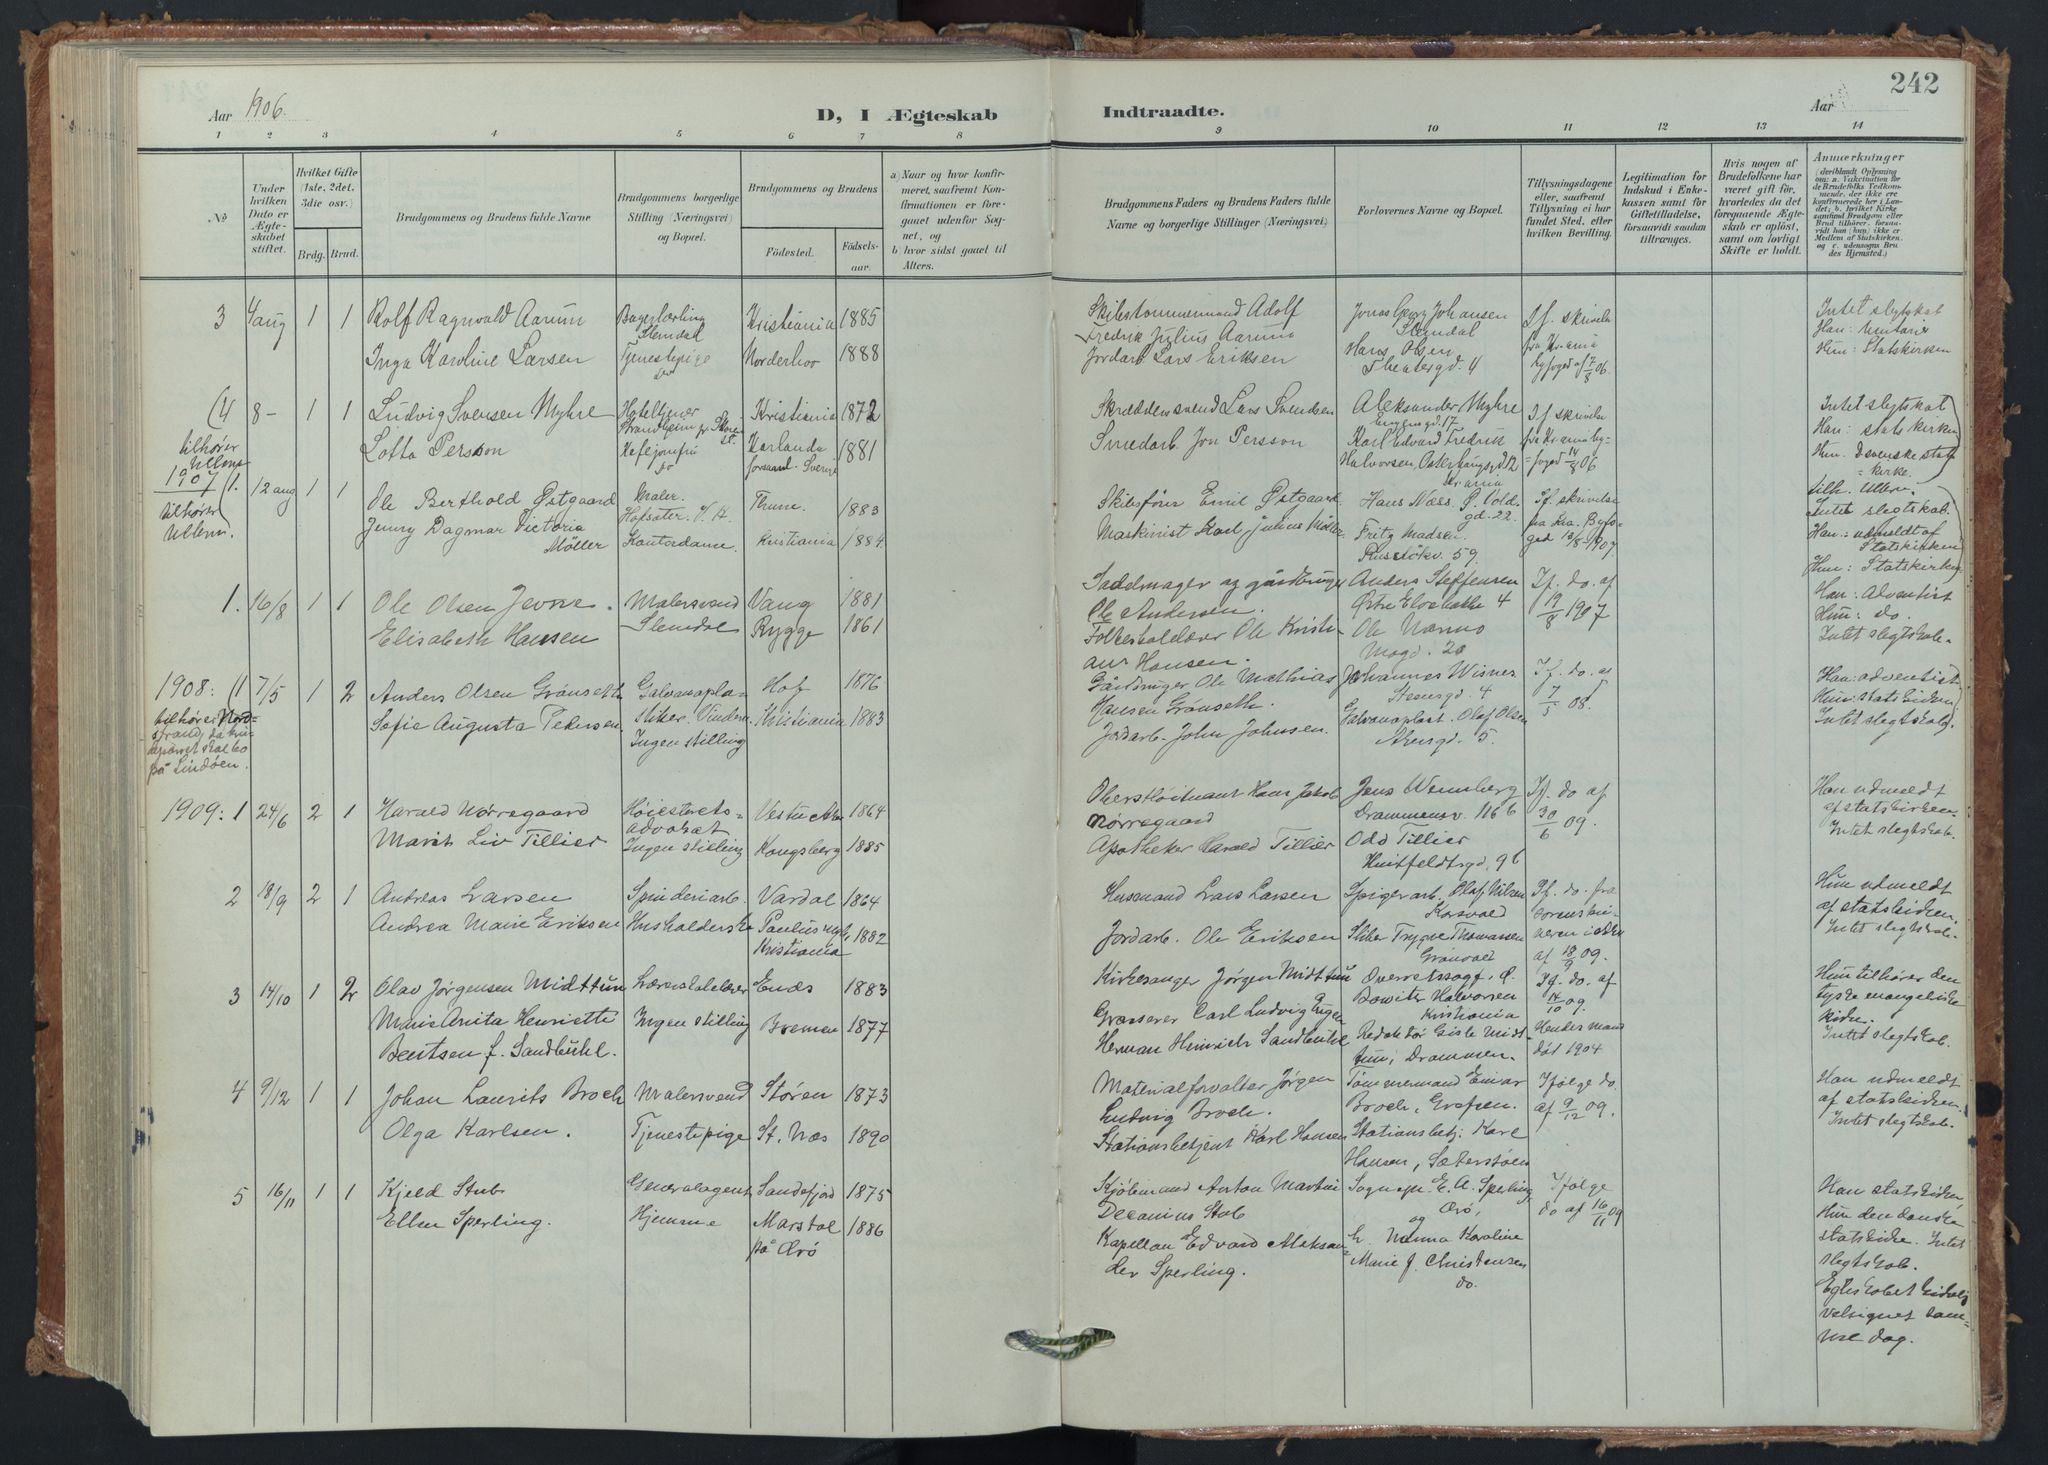 242
Aar 1906.
D, I Ægteskab Indtraadte.
Aar
1 2 3 4 5 6 7 8 9 10 11 12 13 14
No
Under hvilken Dato er Ægteskabet stiftet.
Hvilket Gifte (1ste, 2det, 3die osv.)
Brdg. Brud.
Brudgommens og Brudens fulde Navne
Brudgommens borgerlige Stilling (Næringsvei) og Bopæl.
Brudgommens og Brudens
Fødested.
Fødselsaar.
a) Naar og hvor konfirmeret, saafremt Konfirmationen er foregaaet udenfor Sognet, og
b) hvor sidst gaaet til Alters.
Brudgommens Faders og Brudens Faders fulde Navne og borgerlige Stillinger (Næringsvei)
Forlovernes Navne og Bopæl.
Tillysningsdagene eller, saafremt Tillysning ei har fundet Sted, efter hvilken Bevilling.
Legitimation for Indskud i Enkekassen samt for Giftetilladelse, forsaavidt saadan tiltrænges.
Hvis nogen af Brudefolkene har været gift før, hvorledes da det foregaaende Ægteskab er opløst, samt om lovligt Skifte er holdt.
Anmerkninger
3 4 aug 1 1
Rolf Ragnvald Aarum
Inga Karoline Larsen
Slemdal
Tjenestepige
do
Kristiania 1885
Norderhov 1888
Adolf
Fredrik Julius Aarum
Jordarb. Lars Eriksen
Jonas Georg Johansen
Slemdal
Hans Olsen
Theatergd. 4
If. skrivelse
fra Kr.ania
byfoged af 7/8 06.
Intet slegtskab
Han: Unitarier
Hun: Statskirken
(4 8- 1 1
tilhører
Ullern
Ludvig Svensen Myhre
Lotta Persson
Hoteltjener
Kafejomfru
do
Kristiania 1872
1881
Sverge
Skreddersvend Lars Svendsen
Smedarb. Jon Persson
Aleksander Myhre
Karl Edvard Fredrik
Halvorsen,
Kr.ania
If. skrivelse
fra Kr.ania by-
foged 14/8 06
Intet slegtskab
Han: statskirken
Hun. d svenske stats
=kirke.
tilh. Ullern.
1907 (1. 12 aug 1 1
tilhører
Ullern
Ole Berthold Østgaard
Jenny Dagmar Victoria
Møller
Maler.
Kontordame.
1883
Kristiania 1884.
Skibsfører Emil Østgaard
Maskinist Karl Julius Møller
Hans Næss
gd. 22.
Fritz Madsen.
Russeløkv. 59.
If. skrivelse
fra Kra. Byfo-
ged 10/8-1907.
Intet slegtskab.
Han: udmeldt af
Statskirken
Hun: Statskirken
1. 16/8 1 1
Ole Olsen Jevne.
Elisabeth Hansen
Malersvend
Slemdal
Vang 1881
Rygge 1861
Sadelmager og gårdbruger
Ole Andersen.
Folkeskolelærer Ole Kristi-
an Hansen.
Anders Steffensen
Østre Elvebakke 4
Ole Narmo
Mogd. 20
If. do. af
19/8 1907
Han: Adventist
Hun: do.
Intet slegtskab.
1908: (1 7/5 1 2
tilhører Nord-
strand,
på Lindøen.
Anders Olsen Grønseth
Sofie Augusta Pedersen.
Galvanopla-
stiker. Vindern.
Ingen stilling
Hof 1876
Kristiania 1883
Gårdbruger Ole Mathias
Hansen Grønseth.
Jordarb. John Johnsen.
Johannes Wisner
Steensgd. 4
Galvanoplast. Olaf Olsen
Akersgd. 5.
If. do. af
7/5 08.
Han: adventist
Hun: statskirken
Intet slegtskab.
1909: 1 24/6 2 1
Harald Nørregaard
Marit Liv Tillier
Høiesterets-
advokat
Ingen stilling
Vestre Aker 1864
Kongsberg 1885
Oberstløitnant Hans Jakob
Nørregaard
Apotheker Harald Tillier
Jens Wennberg
Drammensv. 116 b
Odd Tillier
Huitfeldtsgd. 9 b
If. do af
30/6 09.
Han udmeldt
af statskirken.
Intet slegtskab.
2 18/9 2 1
Andreas Larsen
Andrea Marie Eriksen
Spinderiarb.
Husholderske
Vardal 1864
Paulus mgh, 1882
Kristiania
Husmand Lars Larsen
Jordarb. Ole Eriksen
Spigerarb. Olaf Nilsen
Korsvold
Stiker Trygve Thomassen
Granvold
If. do. fra
sorenskri-
veren i Aker
af 18/9 09.
Hun udmeldt
af statskirken.
Intet slegtskab.
3 14/10 1 2
Olav Jørgensen Midttun
Marie Anita Henriette
Bentsen f. Sandbuhl.
Lærerskolelærer
Ingen stilling
Enæs 1883
Bremen 1877
Kirkesanger Jørgen Midttun
Carl Ludvig Eugen
Herman Heinrich Sandbuhl
Overretssagf. C.
Bowitz Halvorsen
Kristiania
Redaktør Gisle Midt-
tun, Drammen.
If. do. af
14/10 09.
Hendes mand
død 1904
Hun tilhører den
tyske evangeliske
kirke.
Intet slegtskab.
4 9/12 1 1
Johan Laurits Broch
Olga Karlsen.
Malersvend
Tjenestepige
Støren 1873
St. Næs 1890
Materialforvalter Jørgen
Ludvig Broch.
Stationsbetjent Karl Hansen
Tømmermand Einar
Broch, Grefsen.
Stationsbetj. Karl
Hansen, Sæterstøen
Ifølge do.
af 9/12 09.
Han udmeldt
af statskirken.
Intet slegtskab.
5 16/11 1 1
Kjeld Stub
Ellen Sperling.
Generalagent
Hjemme
Sandefjord 1875
Marstal 1886
på Ærø
Kjøbmand Anton Martin
Decanius Stub
Kapellan Edvard Aleksan-
der Sperling.
Sognepr. E. A. Sperling
Ærø,
og
Nanna Karoline
Marie J. Christensen
do.
Ifølge
do af 16/11 09
Han statskirken
Hun den danske
statskirke. Intet
slegtskab.
Egteskabet kirkelig
velsignet sam-
me dag.